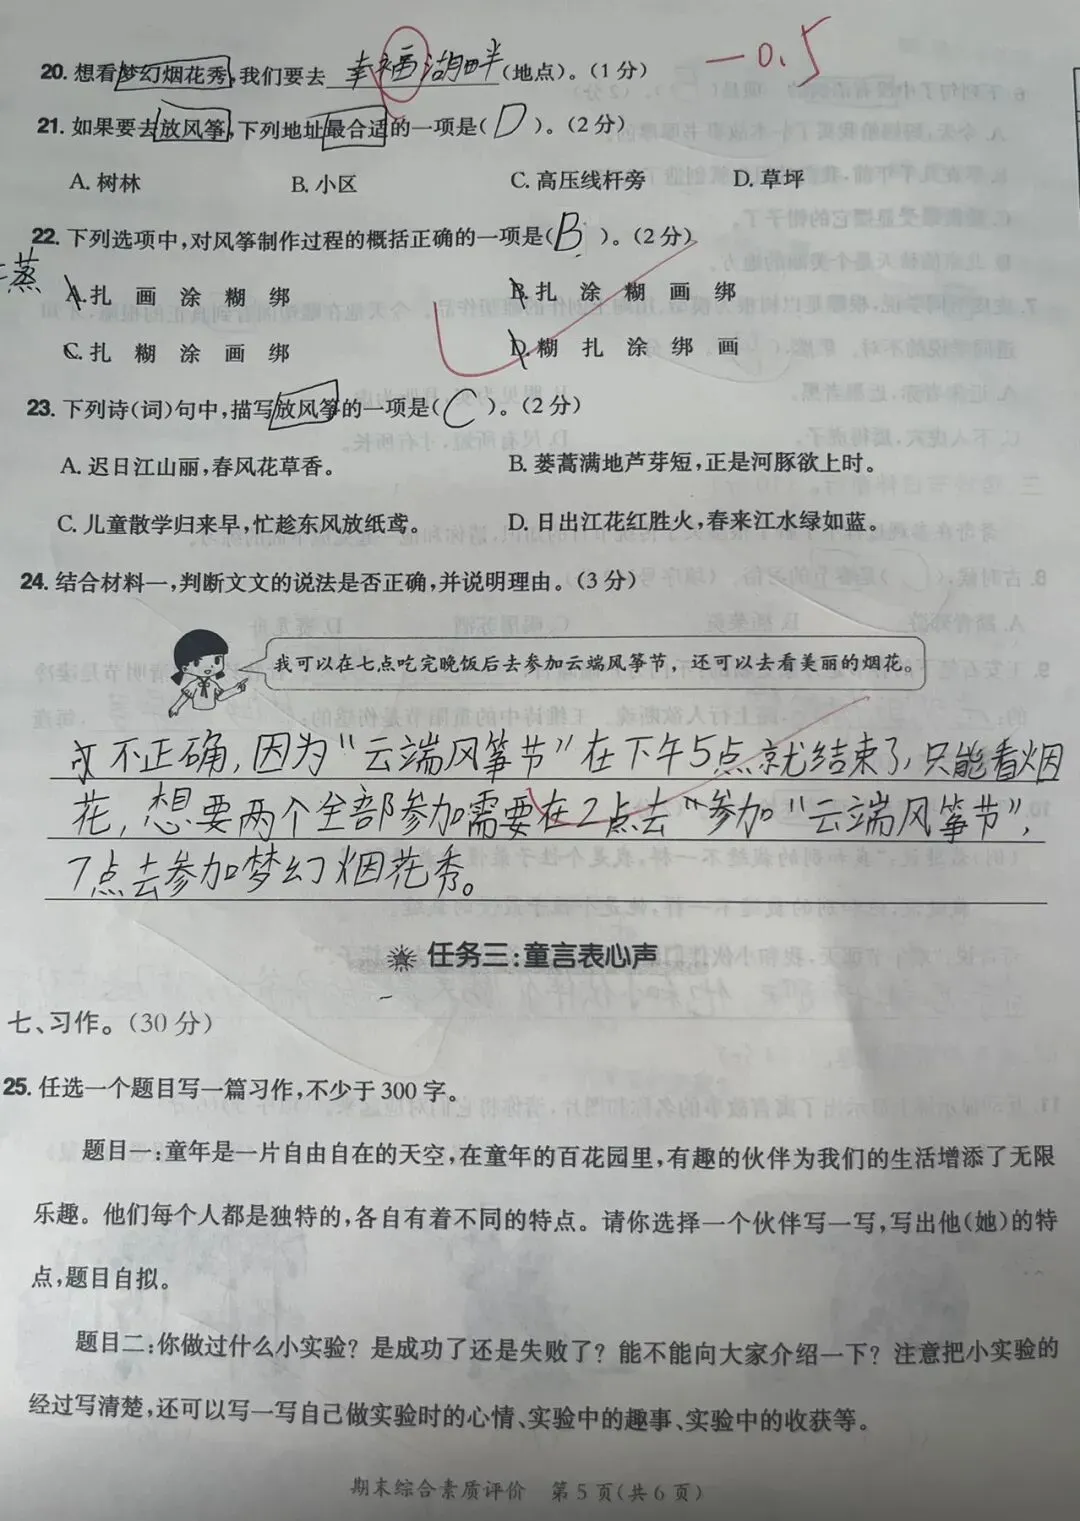 20. 想看梦幻烟花秀,我们要去 幸福湖畔 (地点)。(1分) -0.5
21. 如果要去放风筝,下列地址最合适的一项是( D )。(2分)
A. 树林 B. 小区 C. 高压线杆旁 D. 草坪
22. 下列选项中,对风筝制作过程的概括正确的一项是( B )。(2分)
蒸
A. 扎 画 涂 糊 绑 B. 扎 涂 糊 画 绑
C. 扎 糊 涂 画 绑 D. 糊 扎 涂 绑 画
23. 下列诗(词)句中,描写放风筝的一项是( C )。(2分)
A. 迟日江山丽,春风花草香。 B. 蒌蒿满地芦芽短,正是河豚欲上时。
C. 儿童散学归来早,忙趁东风放纸鸢。 D. 日出江花红胜火,春来江水绿如蓝。
24. 结合材料一,判断文文的说法是否正确,并说明理由。(3分)
我可以在七点吃完晚饭后去参加云端风筝节，还可以去看美丽的烟花。
不正确,因为“云端风筝节”在下午5点就结束了,只能看烟
花,想要两个全部参加需要在2点去“参加“云端风筝节”,
7点去参加梦幻烟花秀。
任务三:童言表心声
七、习作。(30分)
25. 任选一个题目写一篇习作,不少于300字。
题目一:童年是一片自由自在的天空,在童年的百花园里,有趣的伙伴为我们的生活增添了无限
乐趣。他们每个人都是独特的,各自有着不同的特点。请你选择一个伙伴写一写,写出他(她)的特
点,题目自拟。
题目二:你做过什么小实验？是成功了还是失败了？能不能向大家介绍一下？注意把小实验的
经过写清楚,还可以写一写自己做实验时的心情、实验中的趣事、实验中的收获等。
期末综合素质评价 第5页(共6页)